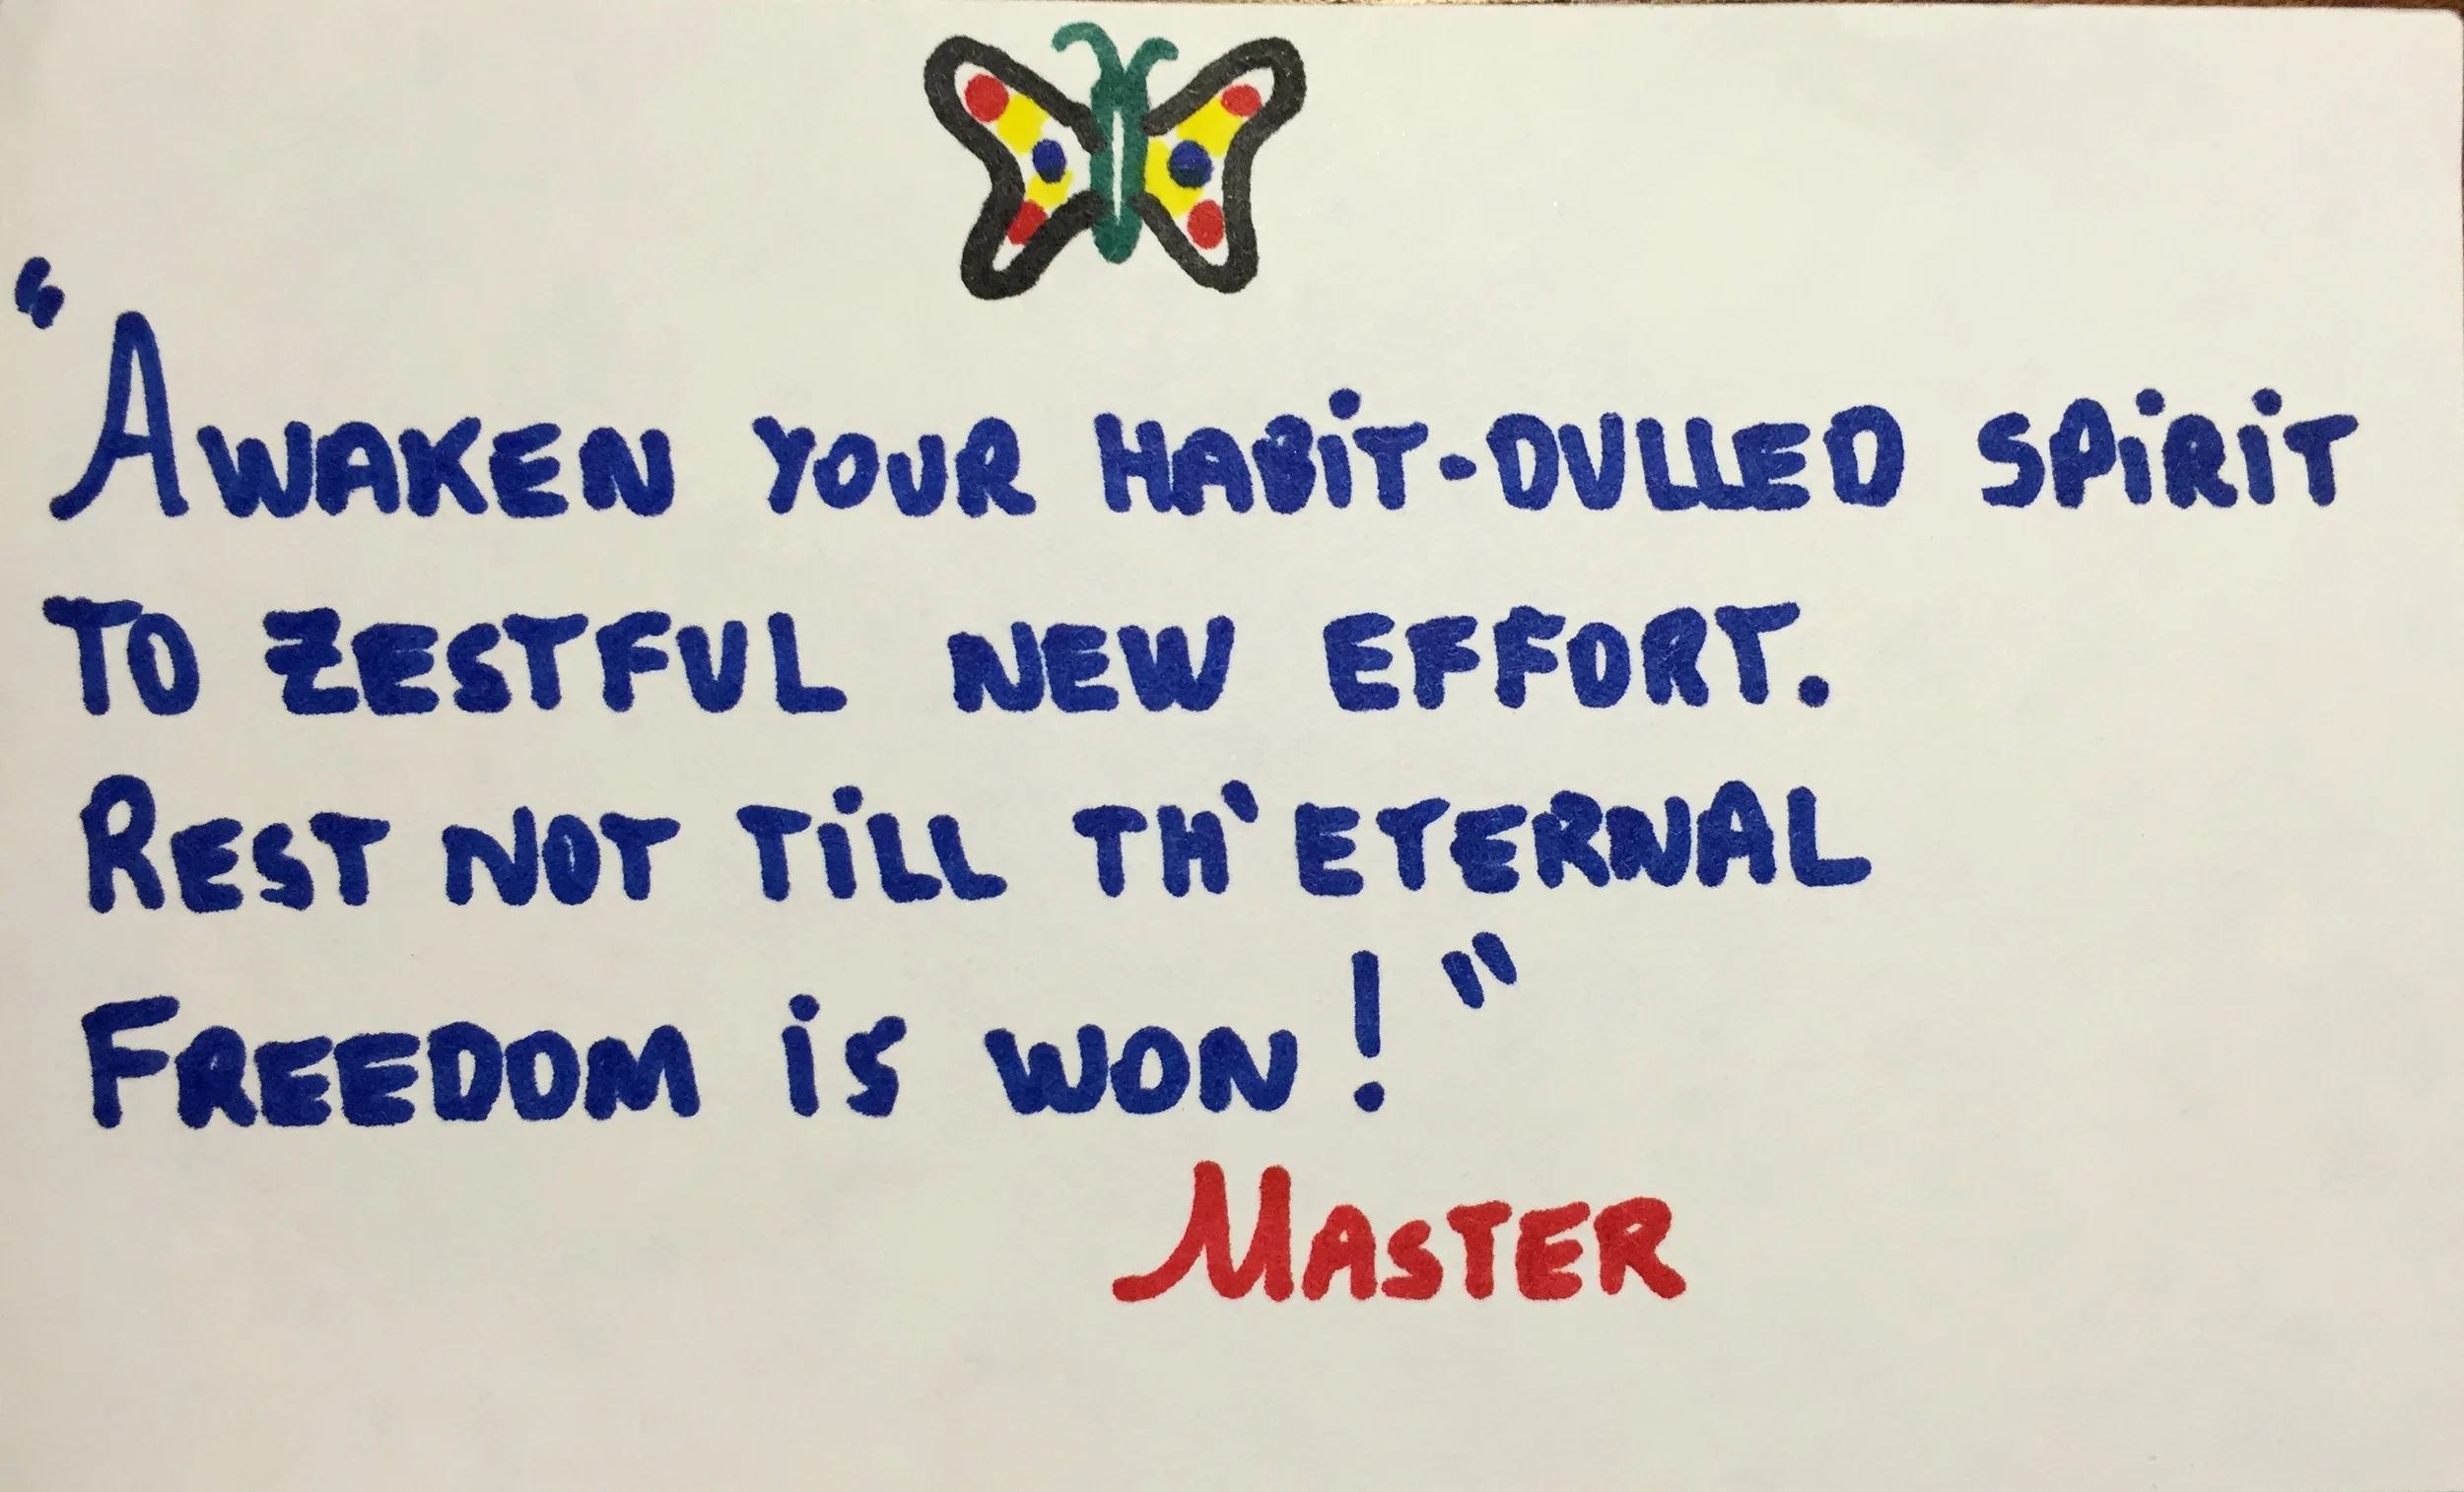 “AWAKEN YOUR HABiT-DULLED SPiRiT
TO ZESTFUL NEW EFFORT.
REST NOT TiLL TH'ETERNAL
FREEDOM iS WON!”
MASTER